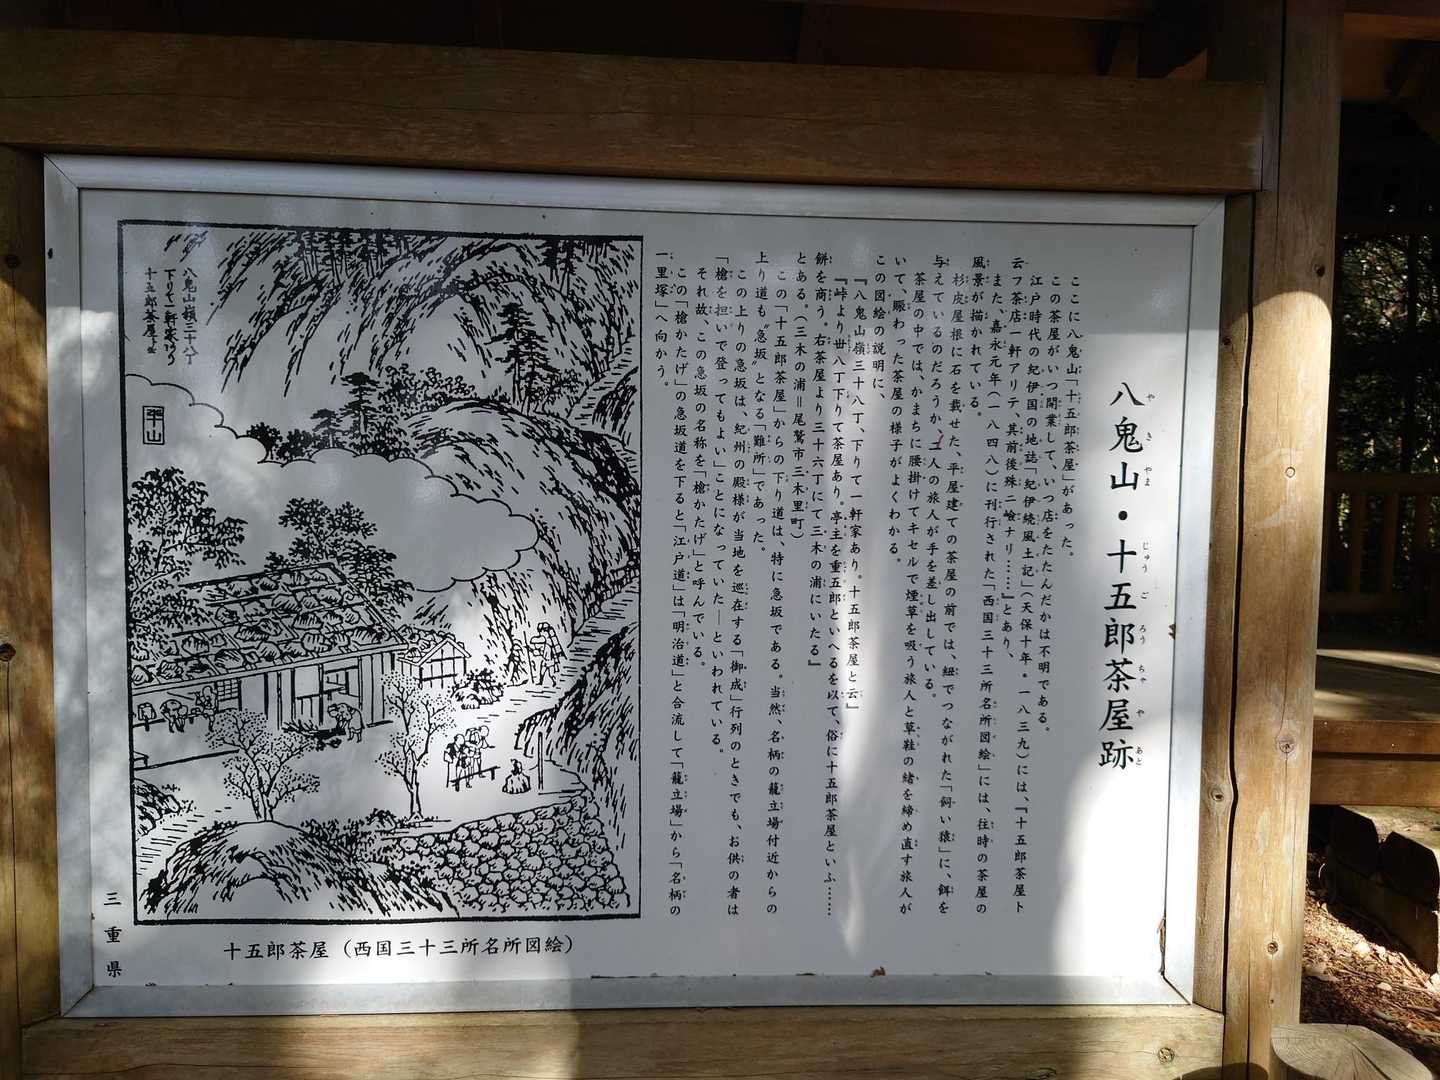 八鬼山・十五郎茶屋跡
やきやま じゅうごろうちゃやあと
ここに八鬼山「十五郎茶屋」があった。
この茶屋がいつ開業して、いつ店をたたんだかは不明である。
江戸時代の紀伊国の地誌「紀伊続風土記」(天保十年。一八三九)には、『十五郎茶屋ト
云フ茶店一軒アリテ、其前後殊ニ嶮ナリ……』とあり、
また、嘉永元年(一八四八)に刊行された「西国三十三所名所図絵」には、往時の茶屋の
風景が描かれている。
杉皮屋根に石を載せた、平屋建ての茶屋の前では、紐でつながれた「飼い猿」に、餌を
与えているのだろうか、二人の旅人が手を差し出している。
茶屋の中では、かまちに腰掛けてキセルで煙草を吸う旅人と草鞋の緒を締め直す旅人が
いて、賑わった茶屋の様子がよくわかる。
この図絵の説明に、
『八鬼山嶺三十八丁、下りて一軒家あり。十五郎茶屋と云』
『峠より丗八丁下りて茶屋あり。亭主を重五郎といへるを以て、俗に十五郎茶屋といふ……
餅を商う。右茶屋より三十六丁にて三木の浦にいたる』
とある。(三木の浦=尾鷲市三木里町)
この「十五郎茶屋」からの下り道は、特に急坂である。当然、名柄の籠立場付近からの
上り道も〝急坂〟となる「難所」であった。
この上りの急坂は、紀州の殿様が当地を巡在する「御成」行列のときでも、お供の者は
「槍を担いで登ってもよい」ことになっていた―といわれている。
それ故、この急坂の名称を「槍かたげ」と呼んでいる。
この「槍かたげ」の急坂道を下ると「江戸道」は「明治道」と合流して「籠立場」から「名柄の
一里塚」へ向かう。
八鬼山嶺三十八丁
下りて一軒家あり
十五郎茶屋と云
平山
十五郎茶屋(西国三十三所名所図絵)
三重県